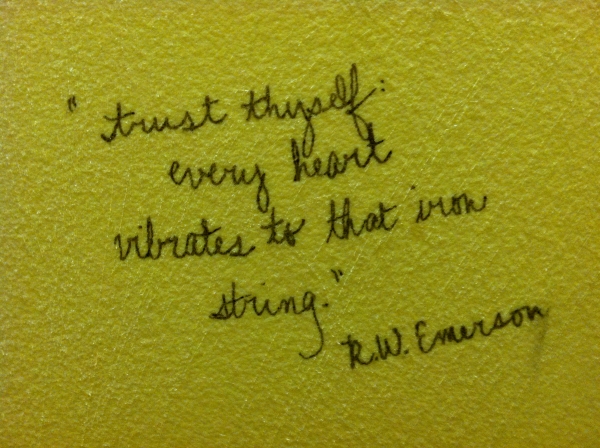 "trust thyself:
every heart
vibrates to that iron
string."
R.W. Emerson